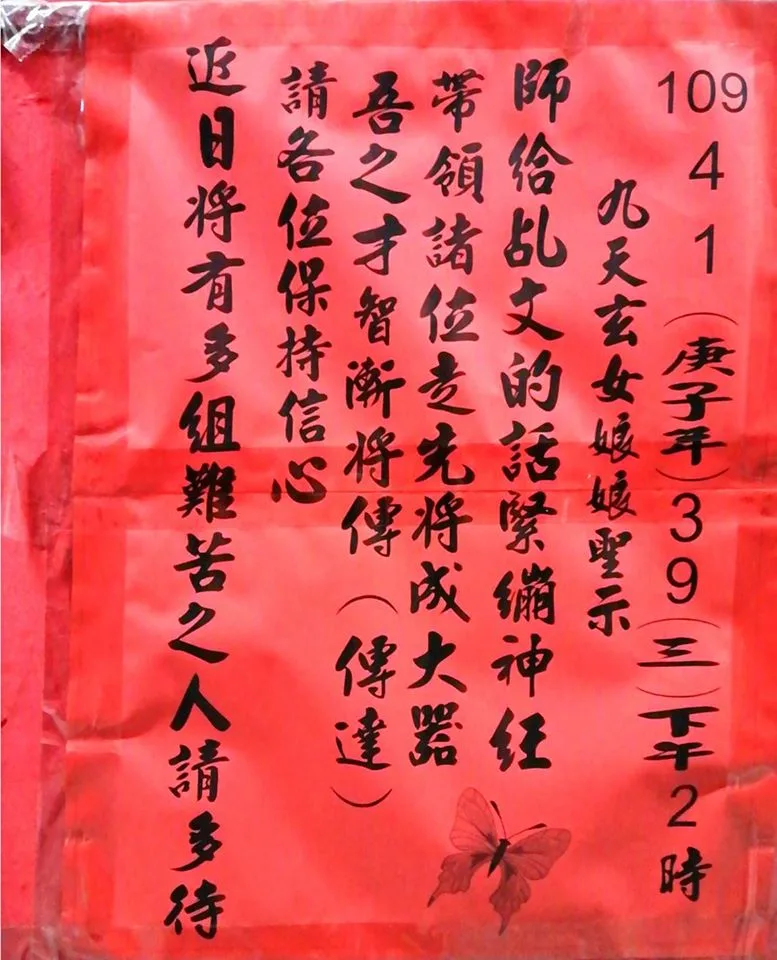 109 4 1(庚子年)3 9(三)下午2時
九天玄女娘娘聖示
師給乩文的話緊繃神经
帶領諸位走先將成大器
吾之才智漸將傳(傳達)
請各位保持信心
近日将有多組難苦之人請多待